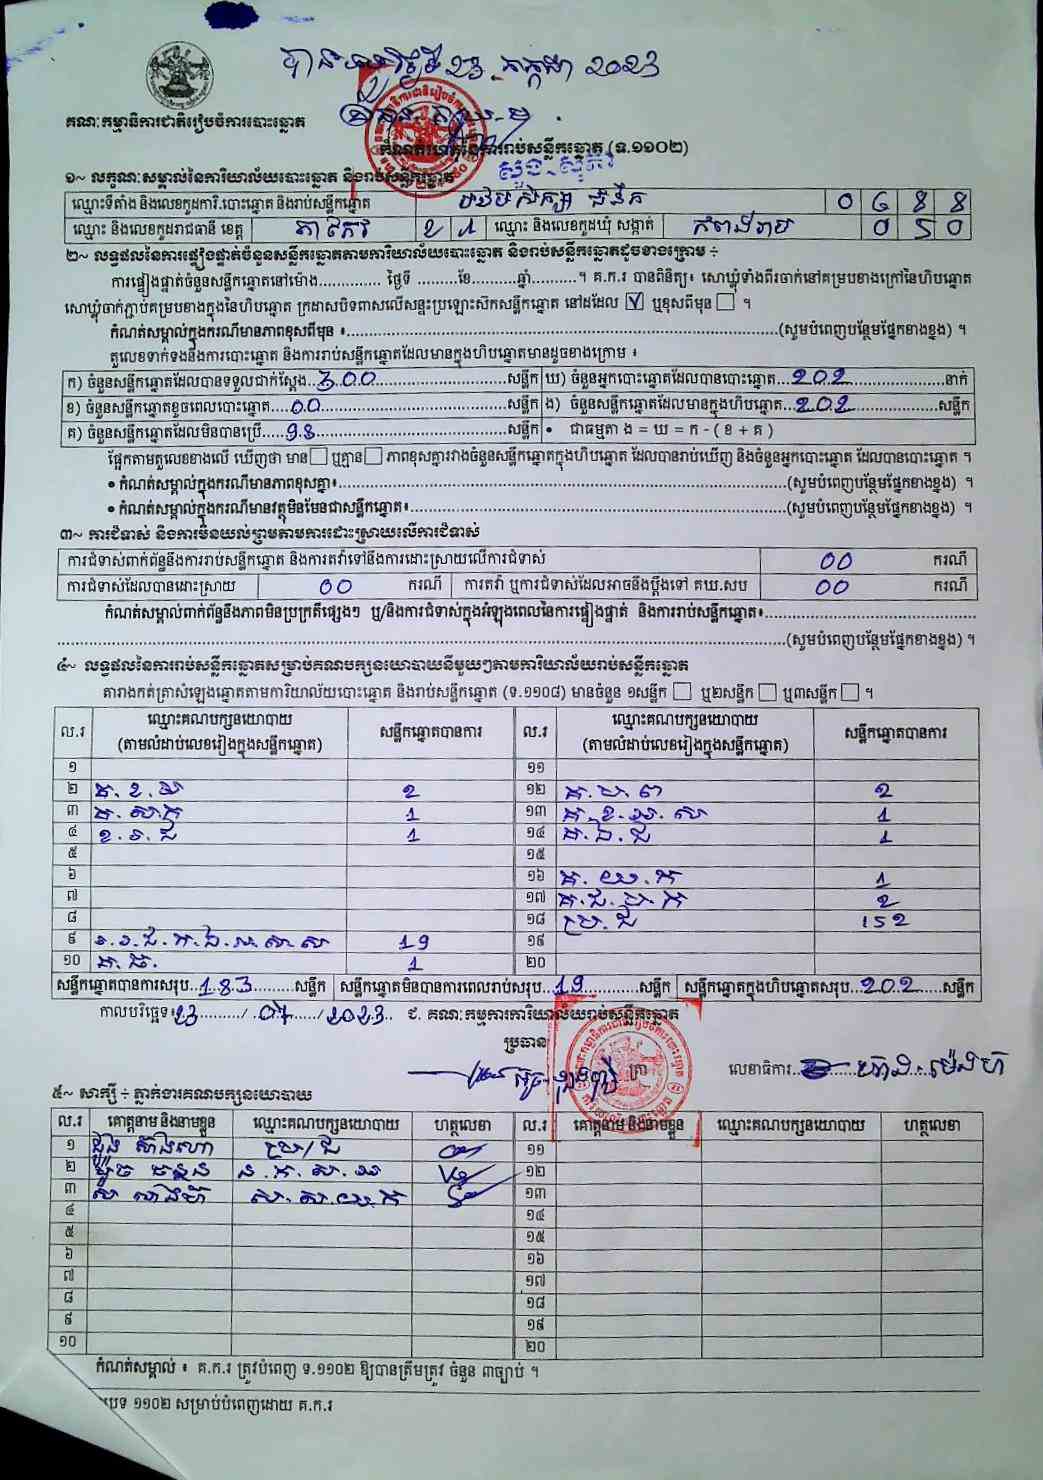 បានឃើញថ្ងៃទី 23 កក្កដា 2023
គណៈកម្មាធិការជាតិរៀបចំការបោះឆ្នោត
កំណត់ហេតុនៃការរាប់សន្លឹកឆ្នោត (ទ.១១០២)
១~ លក្ខណៈសម្គាល់នៃការិយាល័យបោះឆ្នោត និងរាប់សន្លឹកឆ្នោត
ឈ្មោះទីតាំង និងលេខកូដការិ.បោះឆ្នោត និងរាប់សន្លឹកឆ្នោត 0 6 8 8
ឈ្មោះ និងលេខកូដរាជធានី ខេត្ត តាកែវ 2 1 ឈ្មោះ និងលេខកូដឃុំ សង្កាត់ 0 5 0
២~ លទ្ធផលនៃការផ្ទៀងផ្ទាត់ចំនួនសន្លឹកឆ្នោតតាមការិយាល័យបោះឆ្នោត និងរាប់សន្លឹកឆ្នោតដូចខាងក្រោម ÷
ការផ្ទៀងផ្ទាត់ចំនួនសន្លឹកឆ្នោតនៅម៉ោង.............. ថ្ងៃទី .........ខែ..........ឆ្នាំ..........។ គ.ក.រ បានពិនិត្យ៖ សោឃ្លុំទាំងពីរចាក់នៅគម្របខាងក្រៅនៃហិបឆ្នោត
សោឃ្លុំចាក់ភ្ជាប់គម្របខាងក្នុងនៃហិបឆ្នោត ក្រដាសបិទពាសលើសន្ទះប្រឡោះសៀកសន្លឹកឆ្នោត នៅដដែល ☑ ឬខុសពីមុន ☐ ។
កំណត់សម្គាល់ក្នុងករណីមានភាពខុសពីមុន ៖..........(សូមបំពេញបន្ថែមផ្នែកខាងខ្នង) ។
តួលេខទាក់ទងនឹងការបោះឆ្នោត និងការរាប់សន្លឹកឆ្នោតដែលមានក្នុងហិបឆ្នោតមានដូចខាងក្រោម ៖
ក) ចំនួនសន្លឹកឆ្នោតដែលបានទទួលជាក់ស្តែង..300..........សន្លឹក ឃ) ចំនួនអ្នកបោះឆ្នោតដែលបានបោះឆ្នោត..202..........នាក់
ខ) ចំនួនសន្លឹកឆ្នោតខូចពេលបោះឆ្នោត....00..........សន្លឹក ង) ចំនួនសន្លឹកឆ្នោតដែលមានក្នុងហិបឆ្នោត...202..........សន្លឹក
គ) ចំនួនសន្លឹកឆ្នោតដែលមិនបានប្រើ.....98..........សន្លឹក • ជាធម្មតា ង = ឃ = ក - ( ខ + គ )
ផ្អែកតាមតួលេខខាងលើ ឃើញថា មាន☐ ឬគ្មាន☐ ភាពខុសគ្នារវាងចំនួនសន្លឹកឆ្នោតក្នុងហិបឆ្នោត ដែលបានរាប់ឃើញ និងចំនួនអ្នកបោះឆ្នោត ដែលបានបោះឆ្នោត ។
• កំណត់សម្គាល់ក្នុងករណីមានភាពខុសគ្នា៖..........(សូមបំពេញបន្ថែមផ្នែកខាងខ្នង) ។
• កំណត់សម្គាល់ក្នុងករណីមានវត្ថុមិនមែនជាសន្លឹកឆ្នោត៖..........(សូមបំពេញបន្ថែមផ្នែកខាងខ្នង) ។
៣~ ការជំទាស់ និងការមិនយល់ព្រមតាមការដោះស្រាយលើការជំទាស់
ការជំទាស់ពាក់ព័ន្ធនឹងការរាប់សន្លឹកឆ្នោត និងការតវ៉ាទៅនឹងការដោះស្រាយលើការជំទាស់ 00 ករណី
ការជំទាស់ដែលបានដោះស្រាយ 00 ករណី ការតវ៉ា ឬការជំទាស់ដែលអាចនឹងប្តឹងទៅ គឃ.សប 00 ករណី
កំណត់សម្គាល់ពាក់ព័ន្ធនឹងភាពមិនប្រក្រតីផ្សេងៗ ឬ/និងការជំទាស់ក្នុងអំឡុងពេលនៃការផ្ទៀងផ្ទាត់ និងការរាប់សន្លឹកឆ្នោត៖..........
..........(សូមបំពេញបន្ថែមផ្នែកខាងខ្នង) ។
៤~ លទ្ធផលនៃការរាប់សន្លឹកឆ្នោតសម្រាប់គណបក្សនយោបាយនីមួយៗតាមការិយាល័យរាប់សន្លឹកឆ្នោត
តារាងកត់ត្រាសំឡេងឆ្នោតតាមការិយាល័យបោះឆ្នោត និងរាប់សន្លឹកឆ្នោត (ទ.១១០៨) មានចំនួន ១សន្លឹក ☐ ឬ២សន្លឹក ☐ ឬ៣សន្លឹក ☐ ។
ល.រ ឈ្មោះគណបក្សនយោបាយ (តាមលំដាប់លេខរៀងក្នុងសន្លឹកឆ្នោត) សន្លឹកឆ្នោតបានការ ល.រ ឈ្មោះគណបក្សនយោបាយ (តាមលំដាប់លេខរៀងក្នុងសន្លឹកឆ្នោត) សន្លឹកឆ្នោតបានការ
១ ១១
២ គ.ខ.ស 2 ១២ 2
៣ 1 ១៣ 1
៤ ខ.រ.ជ 1 ១៤ គ.ឯ.ជ 1
៥ ១៥
៦ ១៦ គ.យ.ក 1
៧ ១៧ 2
៨ ១៨ ប្រ.ជ 152
៩ 19 ១៩
១០ 1 ២០
សន្លឹកឆ្នោតបានការសរុប..183..........សន្លឹក សន្លឹកឆ្នោតមិនបានការពេលរាប់សរុប..19..........សន្លឹក សន្លឹកឆ្នោតក្នុងហិបឆ្នោតសរុប..202......សន្លឹក
កាលបរិច្ឆេទ៖23......../..07....../..2023.. ជ. គណៈកម្មការការិយាល័យរាប់សន្លឹកឆ្នោត
ប្រធាន
ត្រា លេខាធិការ
៥~ សាក្សី ÷ ភ្នាក់ងារគណបក្សនយោបាយ
ល.រ គោត្តនាម និងនាមខ្លួន ឈ្មោះគណបក្សនយោបាយ ហត្ថលេខា ល.រ គោត្តនាម និងនាមខ្លួន ឈ្មោះគណបក្សនយោបាយ ហត្ថលេខា
១ ប្រ/ជ ១១
២ ១២
៣ ១៣
៤ ១៤
៥ ១៥
៦ ១៦
៧ ១៧
៨ ១៨
៩ ១៩
១០ ២០
កំណត់សម្គាល់ ៖ គ.ក.រ ត្រូវបំពេញ ទ.១១០២ ឱ្យបានត្រឹមត្រូវ ចំនួន ៣ច្បាប់ ។
១១០២ សម្រាប់បំពេញដោយ គ.ក.រ